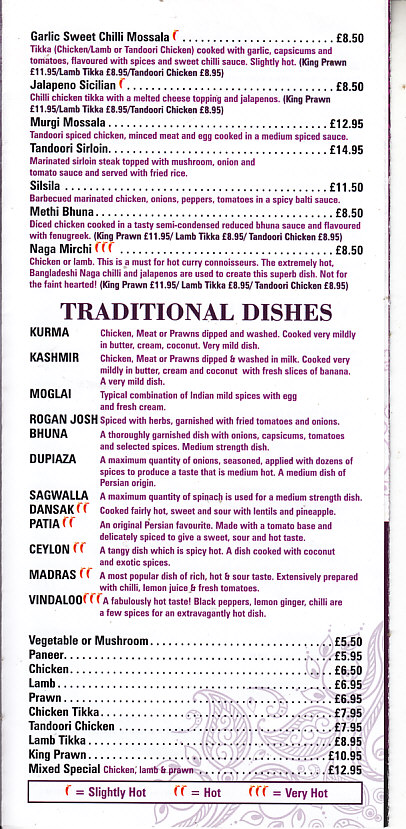 Garlic Sweet Chilli Mossala ........................ £8.50
Tikka (Chicken/Lamb or Tandoori Chicken) cooked with garlic, capsicums and
tomatoes, flavoured with spices and sweet chilli sauce. Slightly hot. (King Prawn
£11.95/Lamb Tikka £8.95/Tandoori Chicken £8.95)
Jalapeno Sicilian ........................ £8.50
Chilli chicken tikka with a melted cheese topping and jalapenos. (King Prawn
£11.95/Lamb Tikka £8.95/Tandoori Chicken £8.95)
Murgi Mossala ........................ £12.95
Tandoori spiced chicken, minced meat and egg cooked in a medium spiced sauce.
Tandoori Sirloin ........................ £14.95
Marinated sirloin steak topped with mushroom, onion and
tomato sauce and served with fried rice.
Silsila ........................ £11.50
Barbecued marinated chicken, onions, peppers, tomatoes in a spicy balti sauce.
Methi Bhuna ........................ £8.50
Diced chicken cooked in a tasty semi-condensed reduced bhuna sauce and flavoured
with fenugreek. (King Prawn £11.95/ Lamb Tikka £8.95/ Tandoori Chicken £8.95)
Naga Mirchi ........................ £8.50
Chicken or lamb. This is a must for hot curry connoisseurs. The extremely hot,
Bangladeshi Naga chilli and jalapenos are used to create this superb dish. Not for
the faint hearted! (King Prawn £11.95/ Lamb Tikka £8.95/ Tandoori Chicken £8.95)
TRADITIONAL DISHES
KURMA Chicken, Meat or Prawns dipped and washed. Cooked very mildly
in butter, cream, coconut. Very mild dish.
KASHMIR Chicken, Meat or Prawns dipped & washed in milk. Cooked very
mildly in butter, cream and coconut with fresh slices of banana.
A very mild dish.
MOGLAI Typical combination of Indian mild spices with egg
and fresh cream.
ROGAN JOSH Spiced with herbs, garnished with fried tomatoes and onions.
BHUNA A thoroughly garnished dish with onions, capsicums, tomatoes
and selected spices. Medium strength dish.
DUPIAZA A maximum quantity of onions, seasoned, applied with dozens of
spices to produce a taste that is medium hot. A medium dish of
Persian origin.
SAGWALLA A maximum quantity of spinach is used for a medium strength dish.
DANSAK Cooked fairly hot, sweet and sour with lentils and pineapple.
PATIA An original Persian favourite. Made with a tomato base and
delicately spiced to give a sweet, sour and hot taste.
CEYLON A tangy dish which is spicy hot. A dish cooked with coconut
and exotic spices.
MADRAS A most popular dish of rich, hot & sour taste. Extensively prepared
with chilli, lemon juice & fresh tomatoes.
VINDALOO A fabulously hot taste! Black peppers, lemon ginger, chilli are
a few spices for an extravagantly hot dish.
Vegetable or Mushroom ........................ £5.50
Paneer ........................ £5.95
Chicken ........................ £6.50
Lamb ........................ £6.95
Prawn ........................ £6.95
Chicken Tikka ........................ £7.95
Tandoori Chicken ........................ £7.95
Lamb Tikka ........................ £8.95
King Prawn ........................ £10.95
Mixed Special Chicken, lamb & prawn ........................ £12.95
= Slightly Hot = Hot = Very Hot